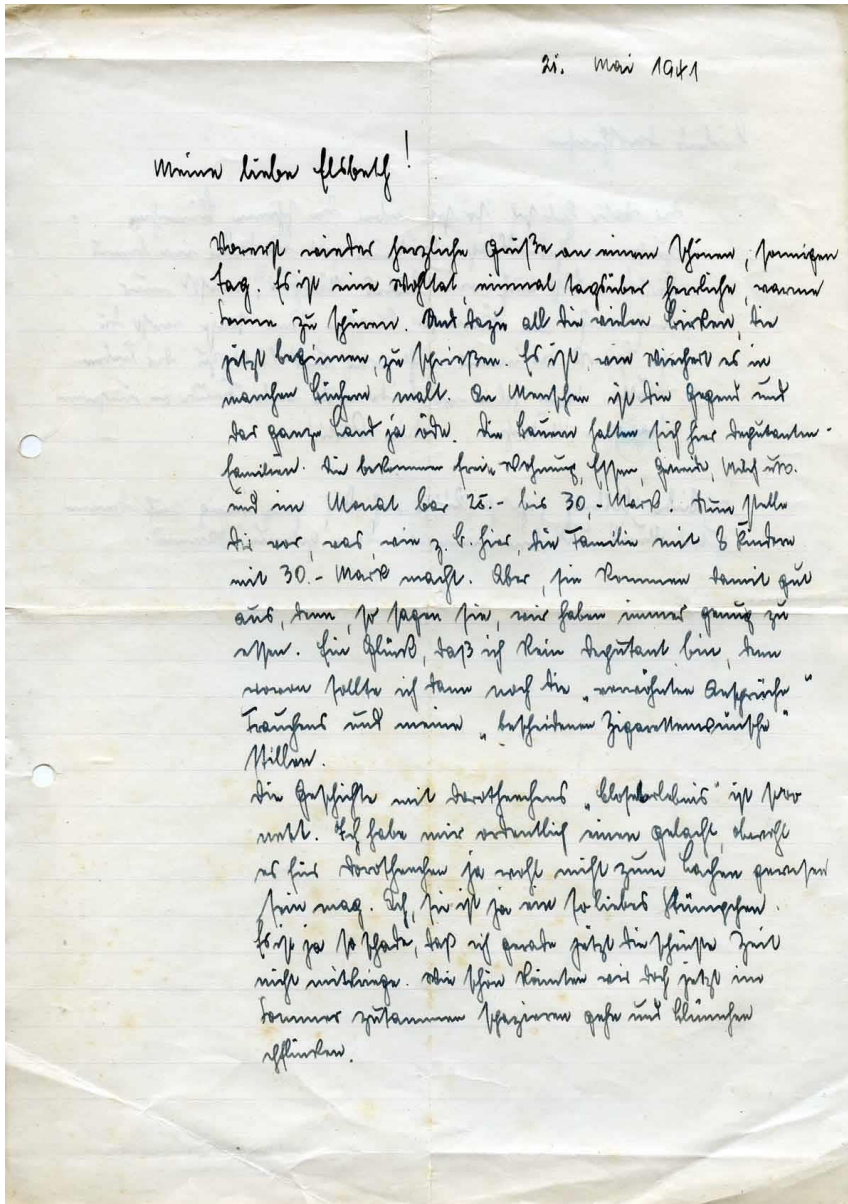 21. Mai 1941
Meine liebe Elsbeth!
Vorerst wieder herzliche Grüße an einem schönen, sonnigen
Tag. Es ist eine Wohltat, einmal tagsüber herrliche, warme
Sonne zu spüren. Und dazu all die vielen Birken, die
jetzt beginnen, zu sprießen. Es ist, wie Wiechert es in
manchen Büchern malt. An Menschen ist die Gegend und
das ganze Land ja öde. Die Bauern halten sich hier Deputanten-
familien. Die bekommen freie Wohnung, Essen, Milch usw.
und im Monat bar 25.- bis 30,- Mark. Nun stelle
Dir vor, was, wie z. B. hier, die Familie mit 8 Kindern
mit 30.- Mark macht. Aber, sie kommen damit gut
aus, denn, so sagen sie, wir haben immer genug zu
essen. Ein Glück, daß ich kein Deputant bin, denn
wovon sollte ich dann noch die „verwöhnten Ansprüche"
Frauchens und meine „bescheidenen Zigarettenwünsche"
stillen.
Die Geschichte mit Dorotheechens „Closeterlebnis" ist sooo
nett. Ich habe mir ordentlich einen gelacht, obwohl
es für Dorotheechen ja wohl nicht zum Lachen gewesen
sein mag. Ach, sie ist ja ein so liebes
Es ist ja so schade, daß ich gerade jetzt die schönste Zeit
nicht mitkriege. Wie schön könnten wir doch jetzt im
Sommer zusammen spazieren gehe und Blümchen
pflücken.